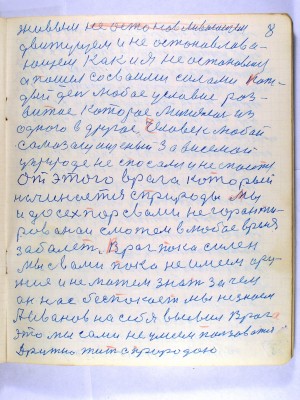 живым не останавливающем 8
движущем и не остонавлова
ющем Как и я не остановлен
а пошел со своими силами
дый ден любое условие роз
витае Которае из
одного в другое Человек любой
самозащищенный Зависемой
у природе не спосали и не спосает
От этого врага который
начинается с природы Мы
и до сех пор с вами не горанти
рованаи сможем в любое время
заболет. Враг пока силен
Мы с вами пока не имеем ору
жия и не можем знат за чем
ан нас беспокоет мы не знаем
Иванов на себя выевил Врага
это мы сами не умеем ползоватся
Дружно жит с природою